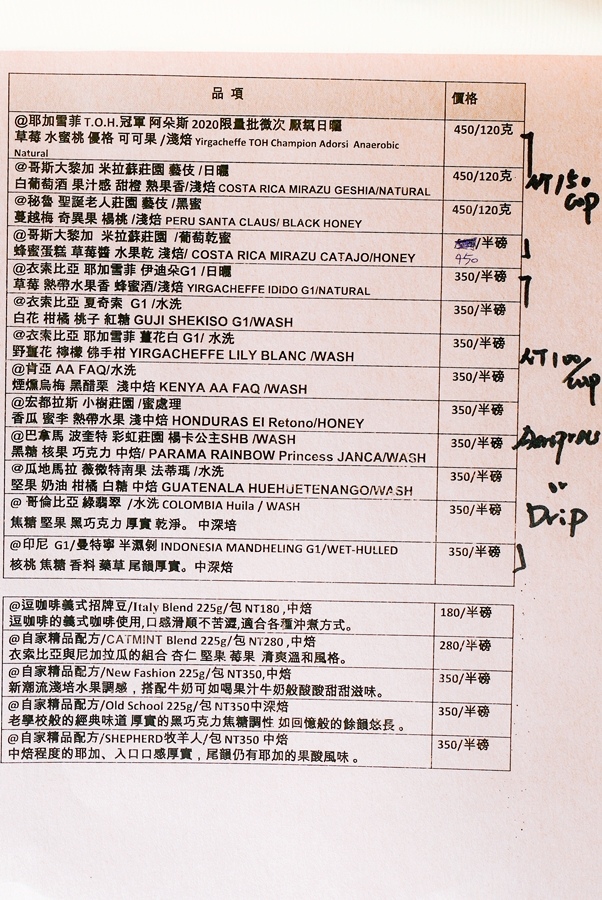 品 項 價格
@耶加雪菲 T.O.H.冠軍 阿朵斯 2020限量批微次 厭氧日曬 450/120克
草莓 水蜜桃 優格 可可果 /淺焙 Yirgacheffe TOH Champion Adorsi Anaerobic
Natural
@哥斯大黎加 米拉蘇莊園 藝伎 /日曬 450/120克
白葡萄酒 果汁感 甜橙 熟果香/淺焙 COSTA RICA MIRAZU GESHIA/NATURAL
@秘魯 聖誕老人莊園 藝伎 /黑蜜 450/120克
蔓越梅 奇異果 楊桃 /淺焙 PERU SANTA CLAUS/ BLACK HONEY
NT 150
cop
@哥斯大黎加 米拉蘇莊園 /葡萄乾蜜 /半磅
450
蜂蜜蛋糕 草莓醬 水果乾 淺焙/ COSTA RICA MIRAZU CATAJO/HONEY
@衣索比亞 耶加雪菲 伊迪朵G1 /日曬 350/半磅
草莓 熱帶水果香 蜂蜜酒/淺焙 YIRGACHEFFE IDIDO G1/NATURAL
@衣索比亞 夏奇索 G1 /水洗 350/半磅
白花 柑橘 桃子 紅糖 GUJI SHEKISO G1/WASH
@衣索比亞 耶加雪菲 薑花白 G1/ 水洗 350/半磅
野薑花 檸檬 佛手柑 YIRGACHEFFE LILY BLANC /WASH
@肯亞 AA FAQ/水洗 350/半磅
煙燻烏梅 黑醋栗 淺中焙 KENYA AA FAQ /WASH
NT 100
/cop
@宏都拉斯 小樹莊園 /蜜處理 350/半磅
香瓜 蜜李 熱帶水果 淺中焙 HONDURAS El Retono/HONEY
@巴拿馬 波奎特 彩虹莊園 楊卡公主SHB /WASH 350/半磅
黑糖 核果 巧克力 中焙/ PARAMA RAINBOW Princess JANCA/WASH
@瓜地馬拉 薇微特南果 法蒂瑪 /水洗 350/半磅
堅果 奶油 柑橘 白糖 中焙 GUATENALA HUEHUETENANGO/WASH
@ 哥倫比亞 綠翡翠 /水洗 COLOMBIA Huila / WASH 350/半磅
焦糖 堅果 黑巧克力 厚實 乾淨。 中深焙
Drip
@印尼 G1/曼特寧 半濕剝 INDONESIA MANDHELING G1/WET-HULLED 350/半磅
核桃 焦糖 香料 藥草 尾韻厚實。中深焙
@逗咖啡義式招牌豆/Italy Blend 225g/包 NT180 ,中焙 180/半磅
逗咖啡的義式咖啡使用,口感滑順不苦澀,適合各種沖煮方式。
@自家精品配方/CATMINT Blend 225g/包 NT280 ,中焙 280/半磅
衣索比亞與尼加拉瓜的組合 杏仁 堅果 莓果 清爽溫和風格。
@自家精品配方/New Fashion 225g/包 NT350,中焙 350/半磅
新潮流淺焙水果調感，搭配牛奶可如喝果汁牛奶般酸酸甜甜滋味。
@自家精品配方/Old School 225g/包 NT350中深焙 350/半磅
老學校般的經典味道 厚實的黑巧克力焦糖調性 如回憶般的餘韻悠長。
@自家精品配方/SHEPHERD牧羊人/包 NT350 中焙 350/半磅
中焙程度的耶加、入口口感厚實，尾韻仍有耶加的果酸風味。